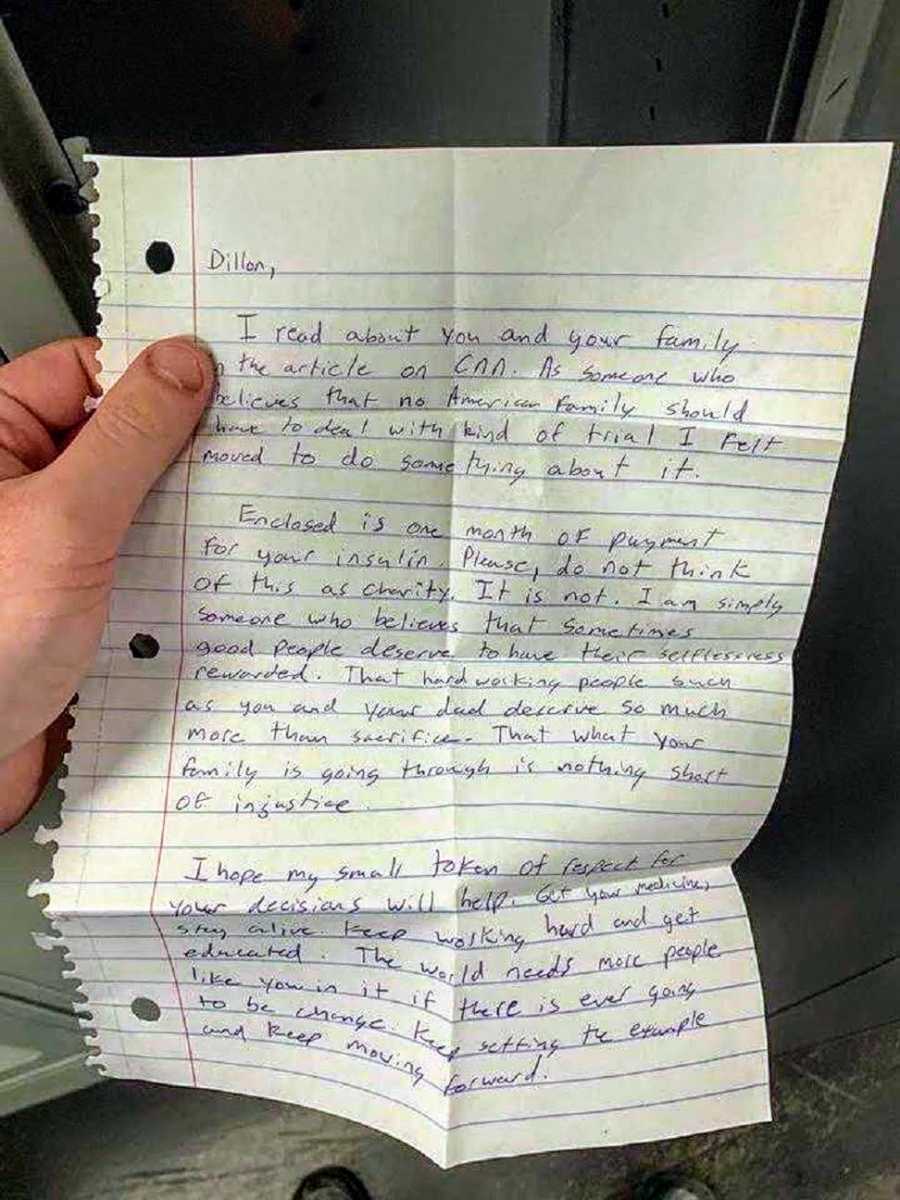 Dillon,
I read about you and your family
the article on CNN. As someone who
believes that no American family should
have to deal with kind of trial I felt
moved to do something about it.
Enclosed is one month of payment
for your insulin. Please, do not think
of this as charity. It is not. I am simply
someone who believes that sometimes
good people deserve to have their selflessness
rewarded. That hard working people such
as you and your dad deserve so much
more than sacrifice. That what your
family is going through is nothing short
of injustice.
I hope my small token of respect for
your decisions will help. Get your medicine,
stay alive. Keep working hard and get
educated. The world needs more people
like you in it if there is ever going
to be change. Keep setting the example
and keep moving forward.